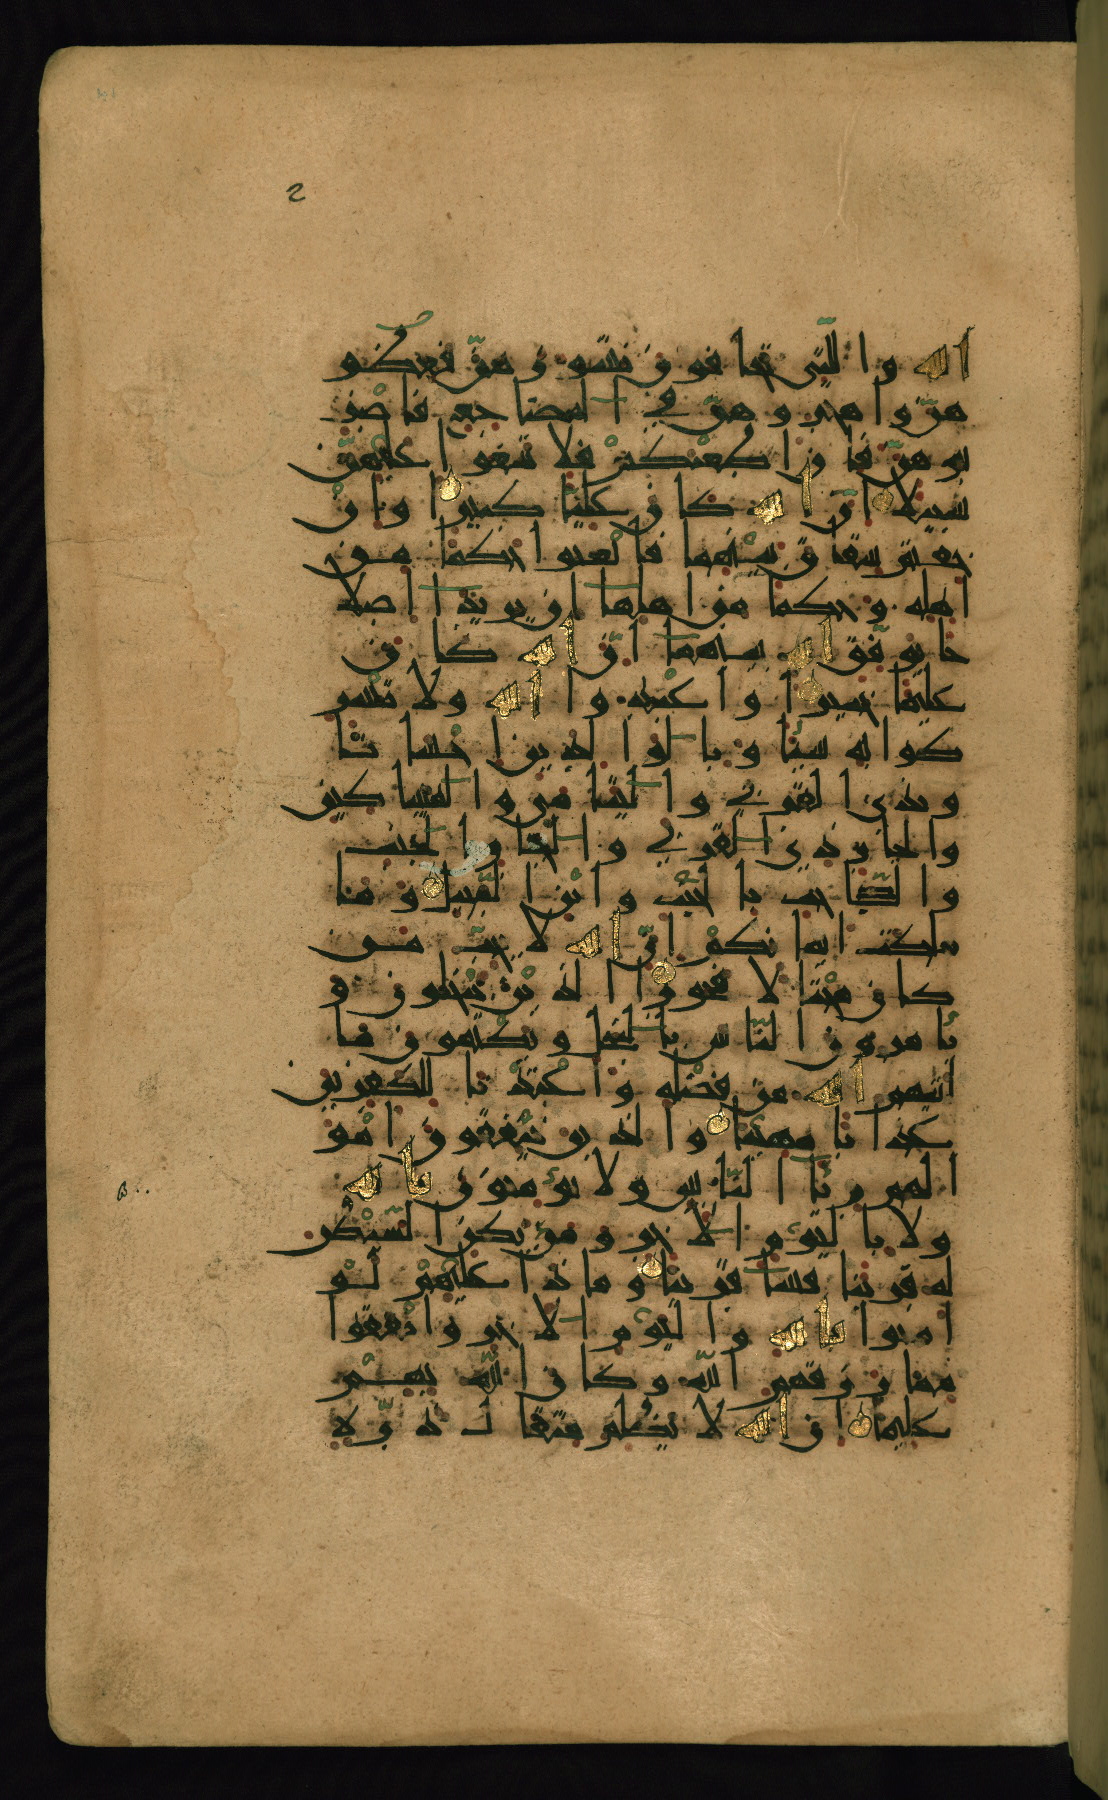 2
الله والتي تخافون نشوزهن فعظو
هن واهجروهن في المضاجع فاضر
بوهن فان اطعنكم فلا تبغوا عليهن
سبيلا ان الله كان عليا كبيرا وان
خفتم شقاق بينهما فابعثوا حكما من
اهله وحكما من اهلها ان يريدا اصلا
حا يوفق الله بينهما ان الله كان
عليما خبيرا واعبدوا الله ولا تشر
كوا به شيئا وبالوالدين احسانا
وبذي القربى واليتامى والمساكين
والجار ذي القربى والجار الجنب
والصاحب بالجنب وابن السبيل وما
ملكت ايمانكم ان الله لا يحب من
كان مختالا فخورا الذين يبخلون و
يأمرون الناس بالبخل ويكتمون ما
اتيهم الله من فضله واعتدنا للكفرين
عذابا مهينا والذين ينفقون امو
الهم رئا الناس ولا يؤمنون بالله
ولا باليوم الاخر ومن يكن الشيطن
له قرينا فسا قرينا وماذا عليهم لو
امنوا بالله واليوم الاخر وانفقوا
مما رزقهم الله وكان الله بهم
عليما ان الله لا يظلم مثقال ذرة